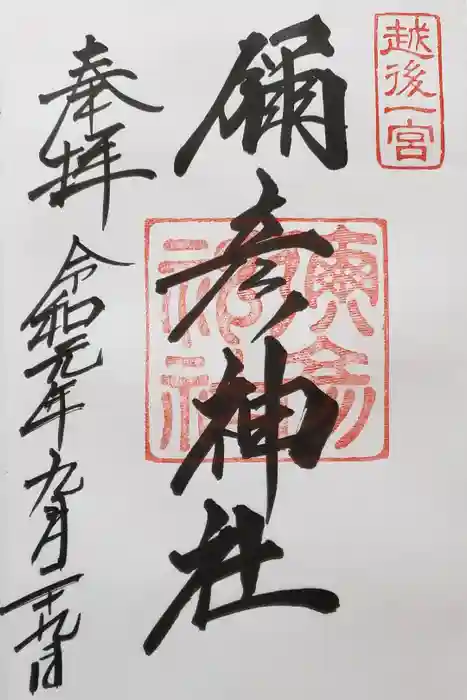 越後一宮
彌彦神社
奉拝
令和元年九月二十九日